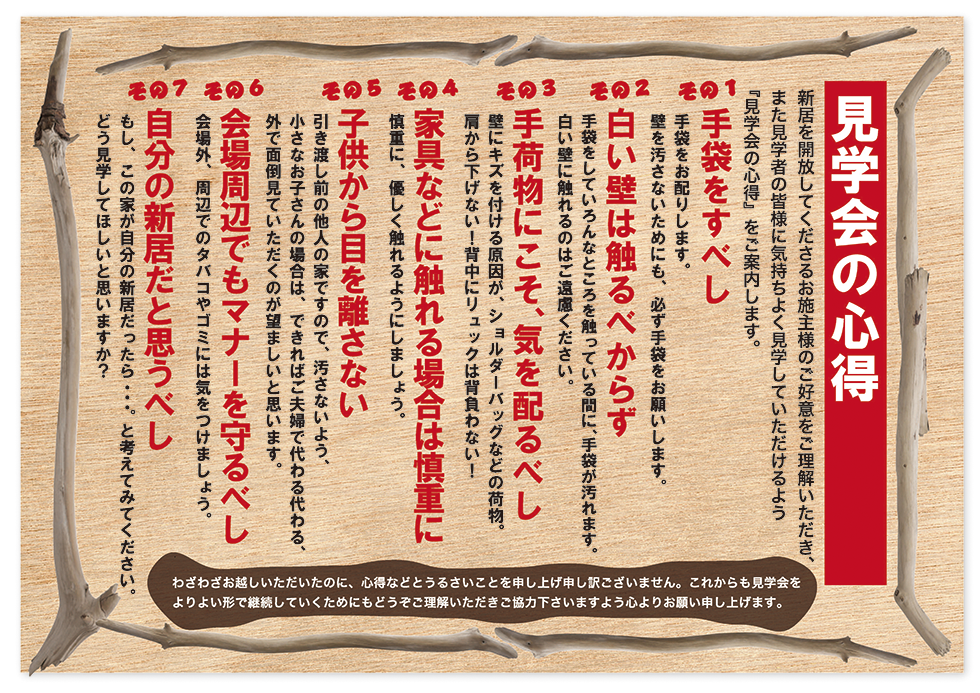 見学会の心得
新居を開放してくださるお施主様のご好意をご理解いただき、
また見学者の皆様に気持ちよく見学していただけるよう
『見学会の心得』をご案内します。
その1
手袋をすべし
手袋をお配りします。
壁を汚さないためにも、必ず手袋をお願いします。
その2
白い壁は触るべからず
手袋をしていろんなところを触っている間に、手袋が汚れます。
白い壁に触れるのはご遠慮ください。
その3
手荷物にこそ、気を配るべし
壁にキズを付ける原因が、ショルダーバッグなどの荷物。
肩から下げない！背中にリュックは背負わない！
その4
家具などに触れる場合は慎重に
慎重に、優しく触れるようにしましょう。
その5
子供から目を離さない
引き渡し前の他人の家ですので、汚さないよう、
小さなお子さんの場合は、できればご夫婦で代わる代わる、
外で面倒見ていただくのが望ましいと思います。
その6
会場周辺でもマナーを守るべし
会場外、周辺でのタバコやゴミには気をつけましょう。
その7
自分の新居だと思うべし
もし、この家が自分の新居だったら・・・。と考えてみてください。
どう見学してほしいと思いますか？
わざわざお越しいただいたのに、心得などとうるさいことを申し上げ申し訳ございません。これからも見学会を
よりよい形で継続していくためにもどうぞご理解いただきご協力下さいますよう心よりお願い申し上げます。